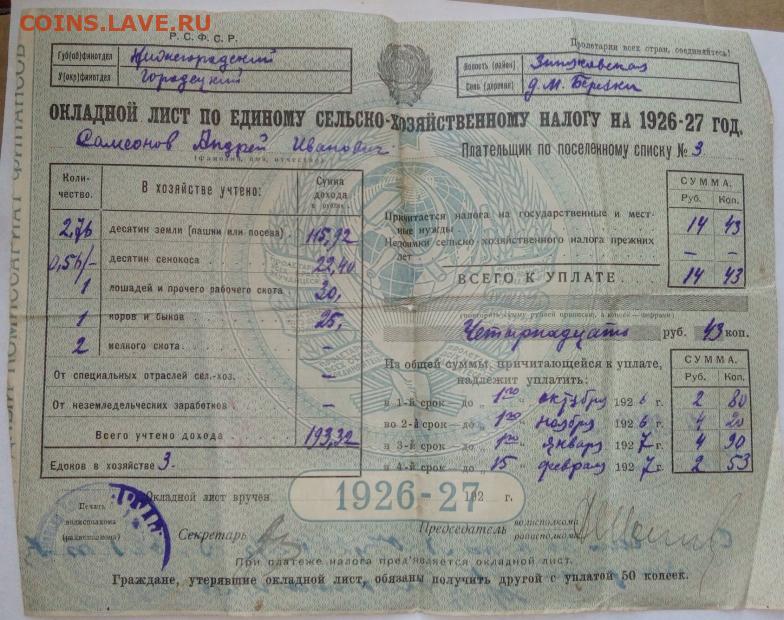 COINS.LAVE.RU
Р. С. Ф. С. Р.
Пролетарии всех стран, соединяйтесь!
Губ(об)финотдел Нижегородский
У(окр)финотдел Городецкий
Волость (район)
Село (деревня) д. М. Березки
ОКЛАДНОЙ ЛИСТ ПО ЕДИНОМУ СЕЛЬСКО-ХОЗЯЙСТВЕННОМУ НАЛОГУ НА 1926-27 ГОД.
Самсонов Андрей Иванович
(фамилия, имя, отчество)
Плательщик по поселенному списку № 3
Коли-чество. В хозяйстве учтено: Сумма дохода в рублях.
2,76 десятин земли (пашни или посева) 115,92
0,56 десятин сенокоса 22,40
1 лошадей и прочего рабочего скота 30,
1 коров и быков 25,
2 мелкого скота —
От специальных отраслей сел.-хоз. —
От неземледельческих заработков —
Всего учтено дохода 193,32
Едоков в хозяйстве 3.
СУММА.
Руб. Коп.
Причитается налога на государственные и мест-
ные нужды 14 43
Недоимки сельско-хозяйственного налога прежних
лет — —
ВСЕГО К УПЛАТЕ 14 43
(повторить сумму рублей прописью, а копеек — цифрами)
Четырнадцать руб. 43 коп.
Из общей суммы, причитающейся к уплате,
надлежит уплатить:
СУММА.
Руб. Коп.
в 1-й срок — до „ 1го " октября 1926 г. 2 80
во 2-й срок — до „ 1го " ноября 1926 г. 4 20
в 3-й срок — до „ 1го " января 1927 г. 4 90
в 4-й срок — до „ 15 " февраля 1927 г. 2 53
Окладной лист вручен 192 г.
1926-27
Печать
волисполкома
(райисполкома)
Секретарь
Председатель волисполкома
райисполкома
При платеже налога пред'является окладной лист.
Граждане, утерявшие окладной лист, обязаны получить другой с уплатой 50 копеек.